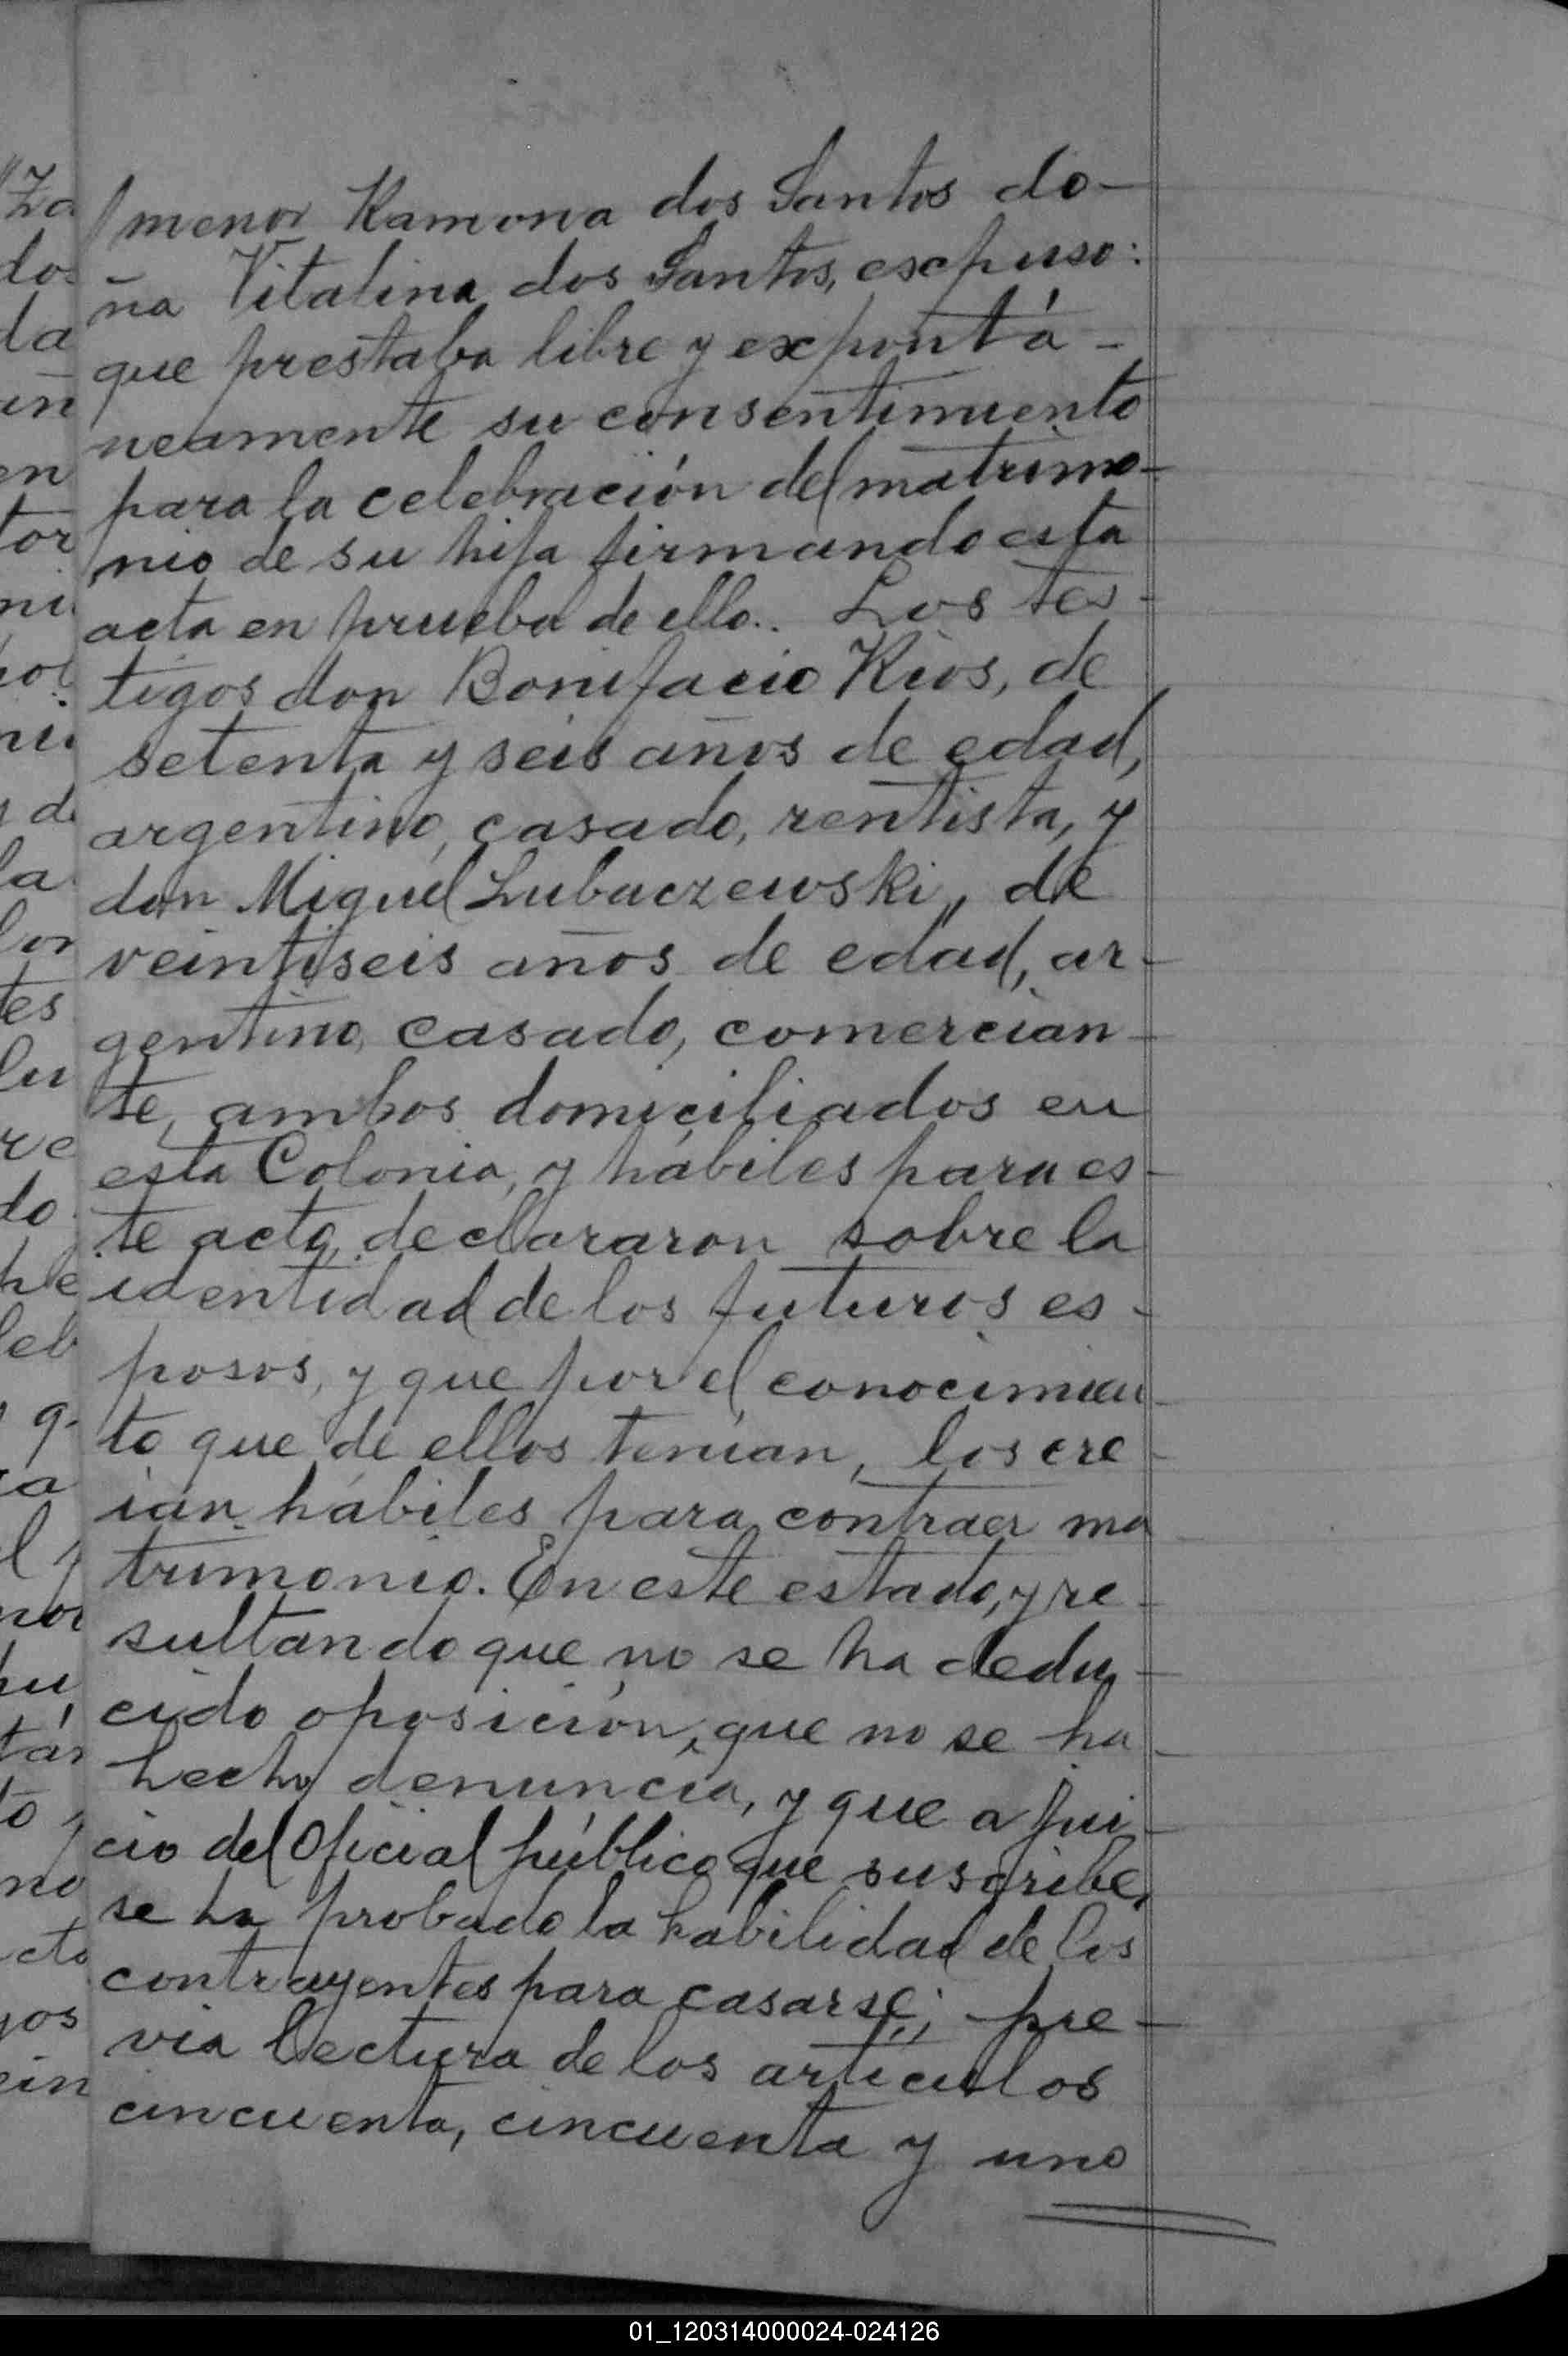 /menor Ramona dos Santos do-
ña Vitalina dos Santos, expuso:
que prestaba libre y expontá-
neamente su consentimiento
para la celebración del matrimo-
nio de su hija firmando esta
acta en prueba de ello.. Los tes-
tigos don Bonifacio Rios, de
setenta y seis años de edad,
argentino, casado, rentista, y
don Miguel Lubaczewski, de
veintiseis años de edad, ar-
gentino, casado, comercian-
te, ambos domiciliados en
esta Colonia, y hábiles para es-
te acto, declararon sobre la
identidad de los futuros es-
posos, y que por el conocimien-
to que de ellos tenían, los cre-
ían hábiles para contraer ma
trimonio. En este estado, y re-
sultando que no se ha dedu-
cido oposición, que no se ha-
hecho denuncia, y que a jui-
cio del Oficial público que suscribe,
se ha probado la habilidad de los
contrayentes para casarse; pre-
via lectura de los artículos
cincuenta, cincuenta y uno
01_120314000024-024126